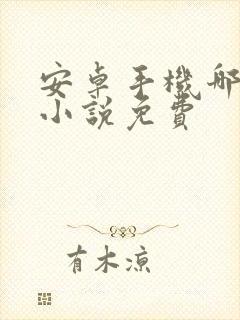 安卓手機哪
小說免費
有木涼